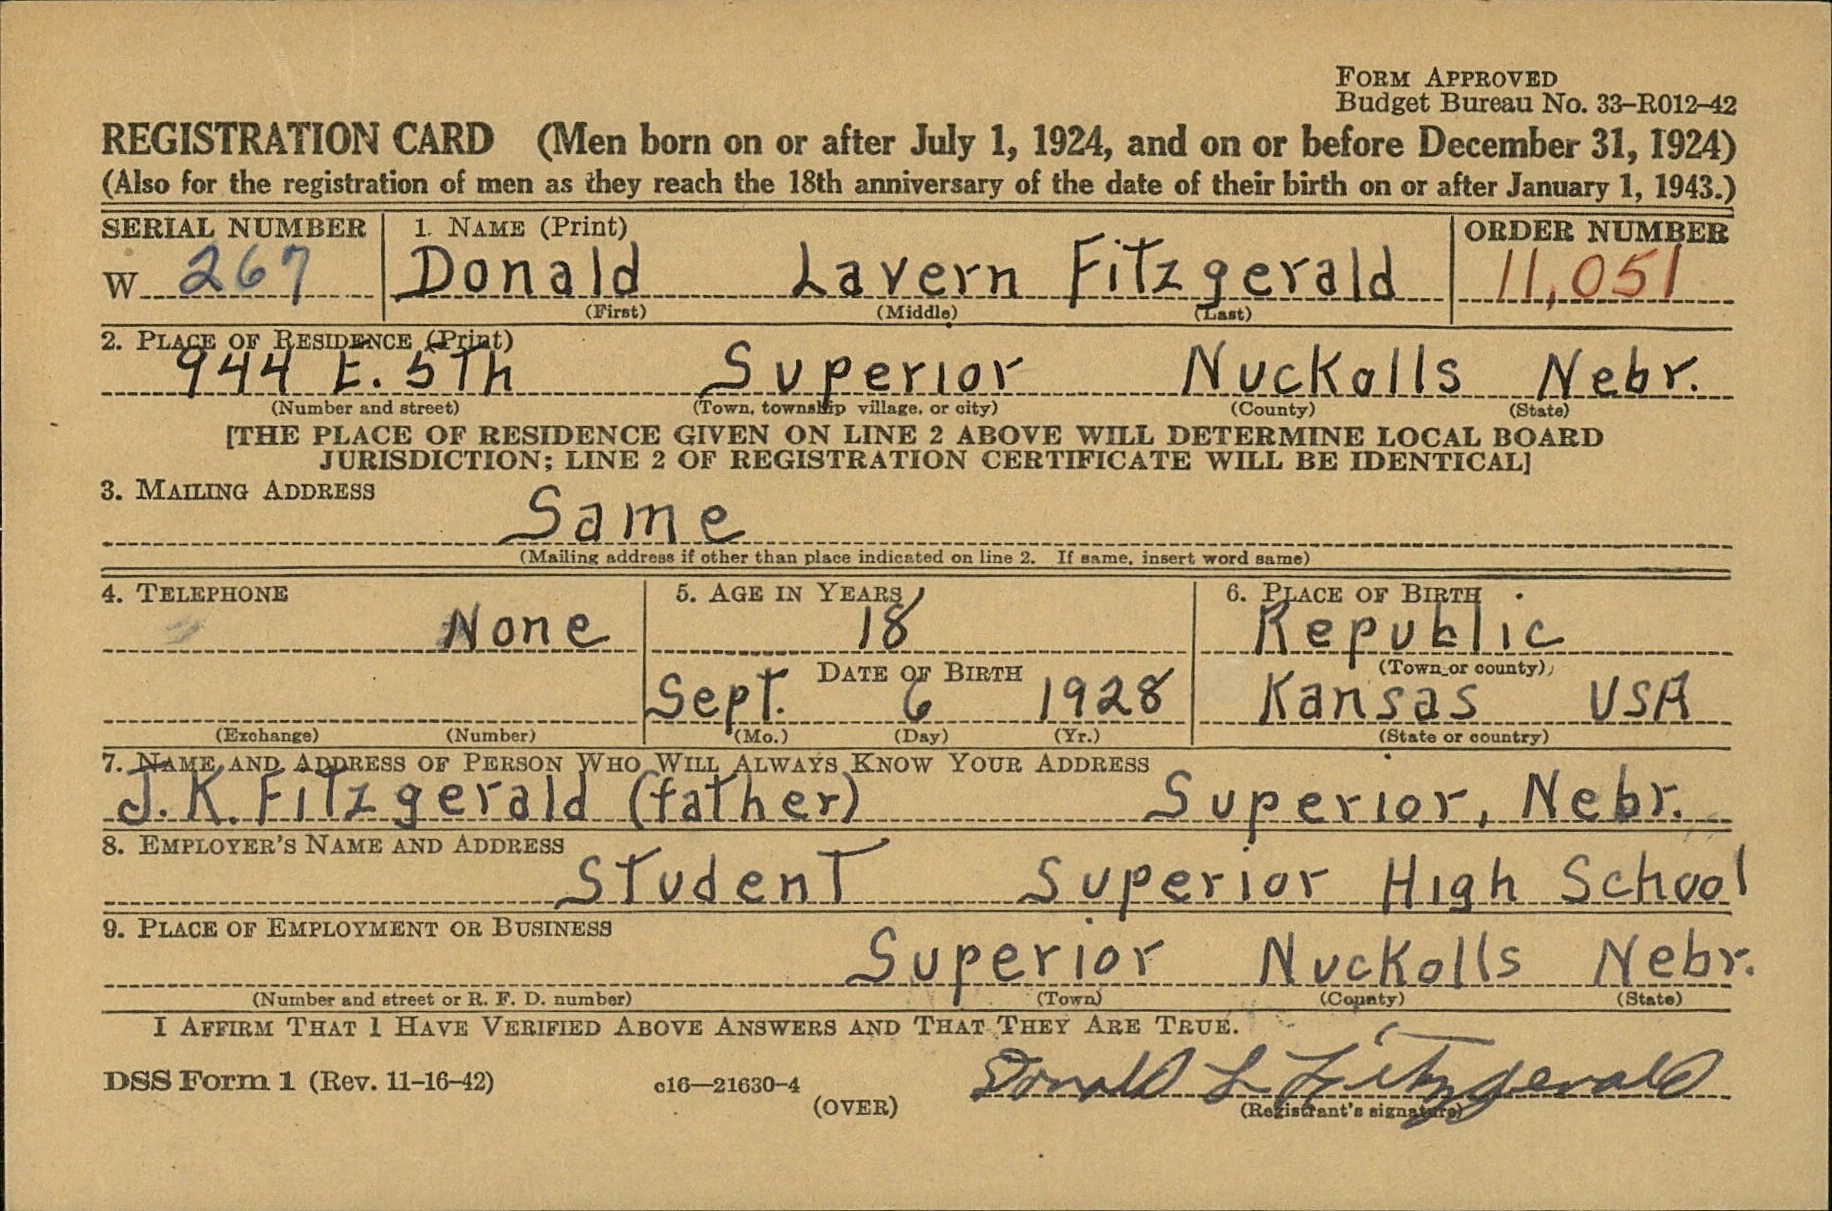 FORM APPROVED
Budget Bureau No. 33–R012–42
REGISTRATION CARD (Men born on or after July 1, 1924, and on or before December 31, 1924)
(Also for the registration of men as they reach the 18th anniversary of the date of their birth on or after January 1, 1943.)
SERIAL NUMBER 1. NAME (Print) ORDER NUMBER
W 267 Donald Lavern Fitzgerald 11,051
(First) (Middle) (Last)
2. PLACE OF RESIDENCE (Print)
944 E. 5Th Superior Nuckolls Nebr.
(Number and street) (Town, township village, or city) (County) (State)
[THE PLACE OF RESIDENCE GIVEN ON LINE 2 ABOVE WILL DETERMINE LOCAL BOARD
JURISDICTION; LINE 2 OF REGISTRATION CERTIFICATE WILL BE IDENTICAL]
3. MAILING ADDRESS
Same
(Mailing address if other than place indicated on line 2. If same, insert word same)
4. TELEPHONE 5. AGE IN YEARS 6. PLACE OF BIRTH
None 18 Republic
DATE OF BIRTH (Town or county)
Sept. 6 1928 Kansas USA
(Exchange) (Number) (Mo.) (Day) (Yr.) (State or country)
7. NAME AND ADDRESS OF PERSON WHO WILL ALWAYS KNOW YOUR ADDRESS
J. K. Fitzgerald (father) Superior, Nebr.
8. EMPLOYER'S NAME AND ADDRESS
Student Superior High School
9. PLACE OF EMPLOYMENT OR BUSINESS
Superior Nuckolls Nebr.
(Number and street or R. F. D. number) (Town) (County) (State)
I AFFIRM THAT I HAVE VERIFIED ABOVE ANSWERS AND THAT THEY ARE TRUE.
DSS Form 1 (Rev. 11–16–42) c16—21630–4 Donald L Fitzgerald
(OVER) (Registrant's signature)